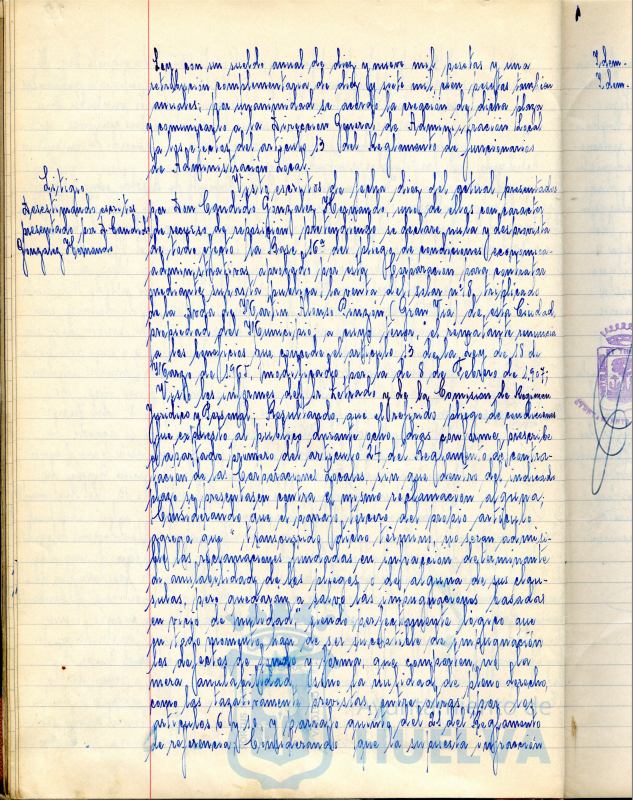 Ley con un sueldo anual de diez y nueve mil pesetas y una
retribución complementaria de diez y siete mil, cien pesetas tambien
anuales; por unanimidad se acordó la creación de dicha plaza
y comunicarlo a la Dirección General de Administración Local
a los efectos del artículo 13 del Reglamento de funcionarios
de Administración Local.
Litigio
Desestimando escritos
presentado por D. Candido
Gonzalez Hernando
Visto escritos de fecha diez del actual, presentados
por Don Candido Gonzalez Hernando, uno de ellos con caracter
de recurso de reposición pretendiendo se declare nula y desprovista
de todo efecto la Base 16ª del pliego de condiciones económico-
administrativas aprobado por esta Corporación para contratar
mediante subasta publica la venta del solar nº 8 triplicado
de la Avda de Martin Alonso Pinzón (Gran Via) de esta Ciudad
propiedad del Municipio a cuyo tenor, el rematante renuncia
a los beneficios que concede el artículo 13 de la Ley de 18 de
Marzo de 1895, modificado por la de 8 de Febrero de 1.907;
Visto los informes del Letrado y de la Comisión de Regimen
Juridico y Personal: Resultando, que el referido pliego de condiciones
fue expuesto al publico durante ocho dias conforme prescribe
el apartado primero del artículo 24 del Reglamento de contra-
tación de las Corporaciones Locales, sin que dentro del indicado
plazo se presentasen contra el mismo reclamación alguna;
Considerando que el parrafo tercero del propio artículo
agrega que "transcurrido dicho término, no serán admisi-
bles las reclamaciones fundadas en infracción determinante
de anulabilidad de los pliegos o de alguna de sus clau-
sulas, pero quedaran a salvo las impugnaciones basadas
en vicio de nulidad", siendo perfectamente lógico que
en todo momento han de ser susceptible de impugnación
los defectos de fondo y forma, que comporten, no la
mera anulabilidad, sino la nulidad de pleno derecho,
como las taxativamente previstas, entre otras, por los
artículos 6 y 7 y parrafo quinto del 24 del Reglamento
de referencia; Considerando que la supuesta infracción
Idem.-
Idem.-
Ayuntamiento de
HUELVA